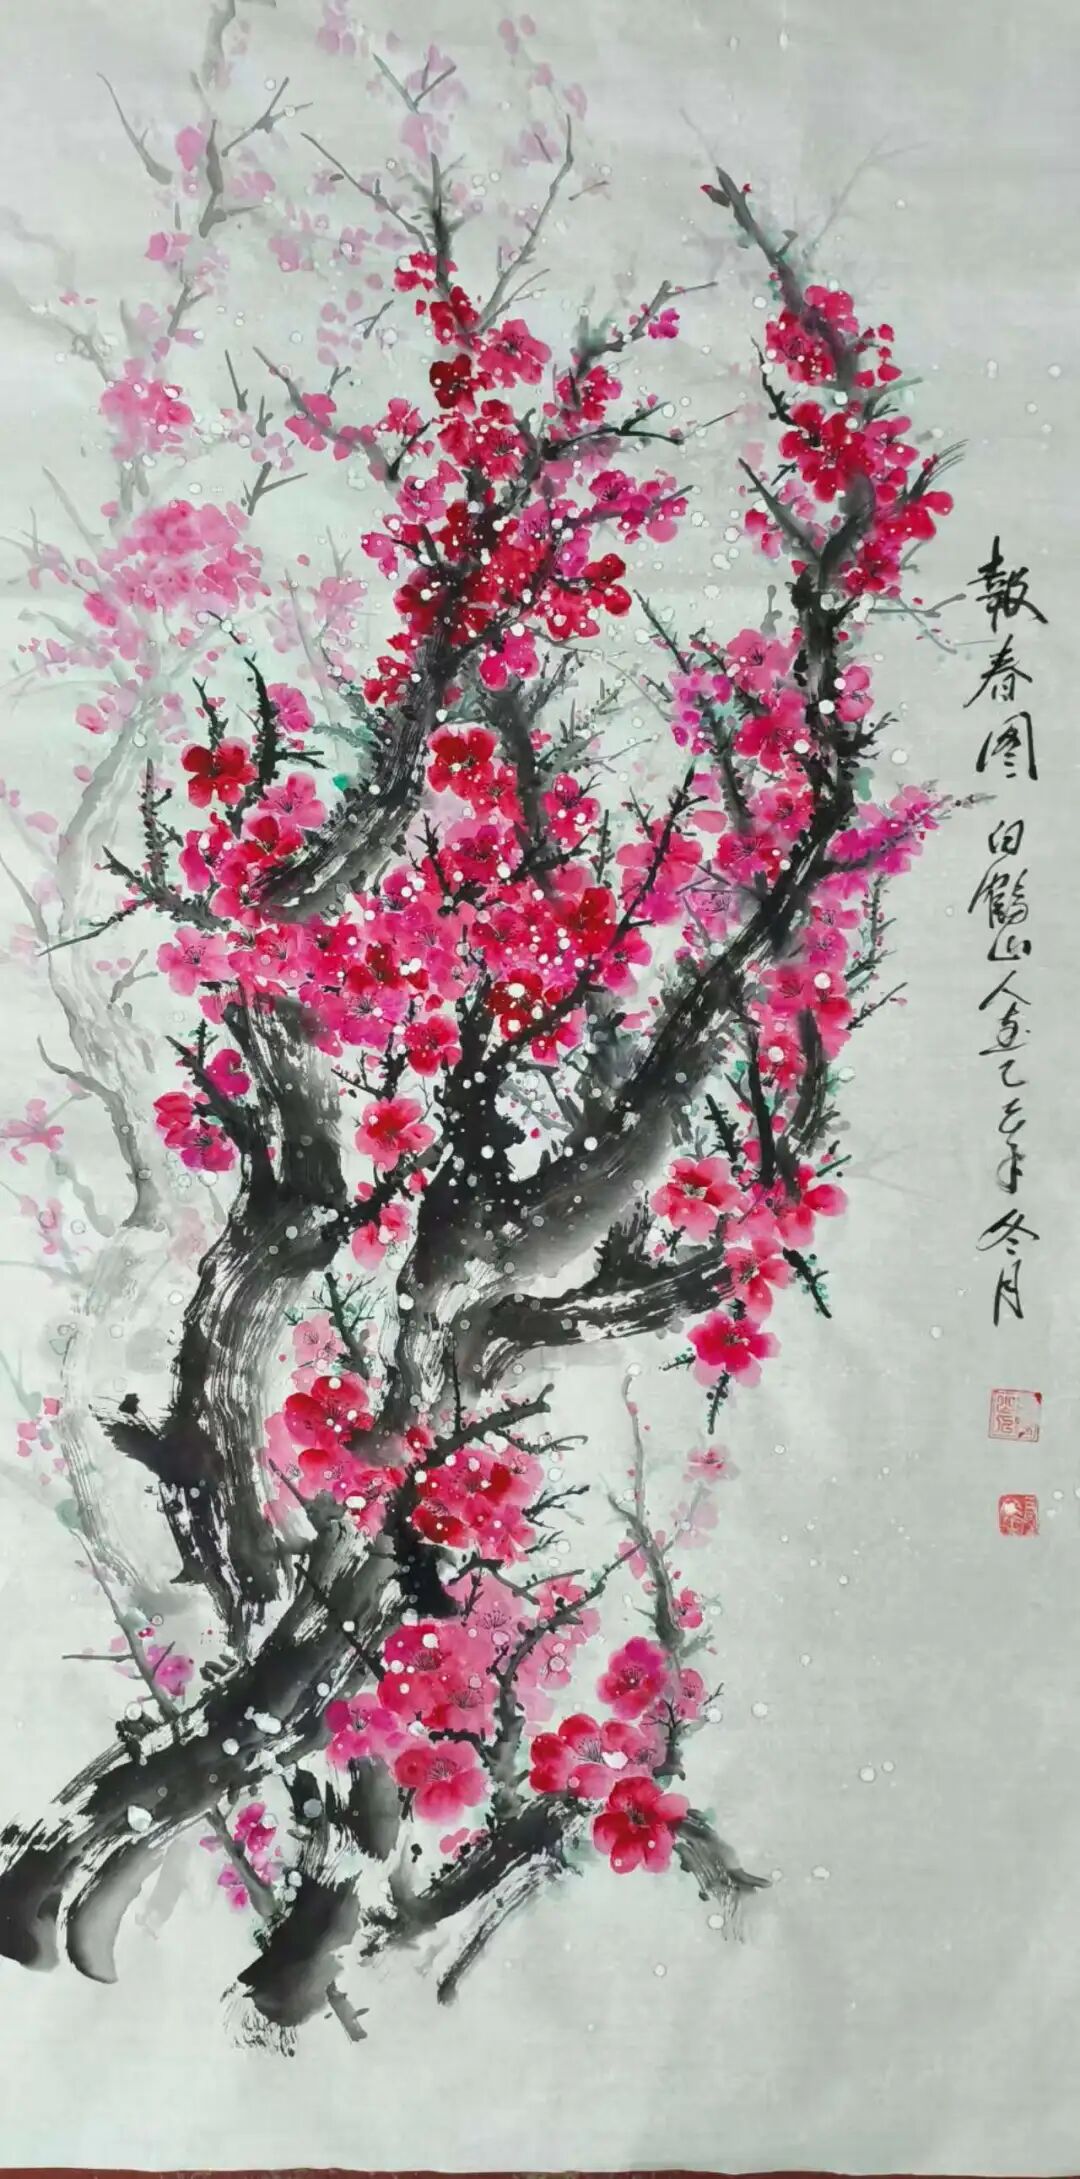 報春图 白鶴山人画乙巳年冬月